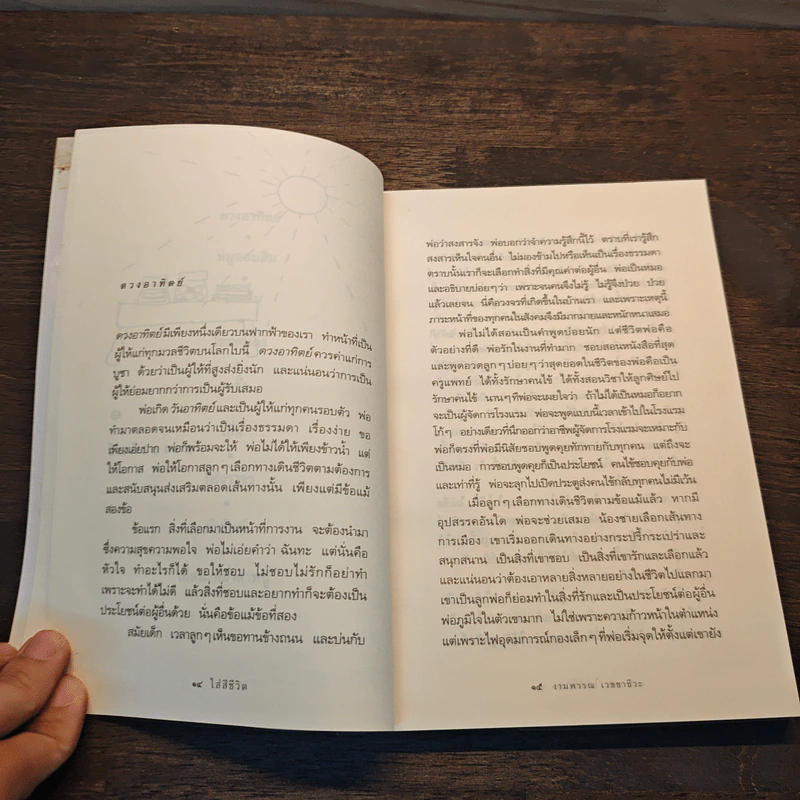 ดวงอาทิตย์
ดวงอาทิตย์มีเพียงหนึ่งเดียวบนฟากฟ้าของเรา ทำหน้าที่เป็น
ผู้ให้แก่ทุกมวลชีวิตบนโลกใบนี้ ดวงอาทิตย์ควรค่าแก่การ
บูชา ด้วยว่าเป็นผู้ให้ที่สูงส่งยิ่งนัก และแน่นอนว่าการเป็น
ผู้ให้ย่อมยากกว่าการเป็นผู้รับเสมอ
พ่อเกิดวันอาทิตย์และเป็นผู้ให้แก่ทุกคนรอบตัว พ่อ
ทำมาตลอดจนเหมือนว่าเป็นเรื่องธรรมดา เรื่องง่าย ขอ
เพียงเอ่ยปาก พ่อก็พร้อมจะให้ พ่อไม่ได้ให้เพียงข้าวน้ำ แต่
ให้โอกาส พ่อให้โอกาสลูกๆ เลือกทางเดินชีวิตตามต้องการ
และสนับสนุนส่งเสริมตลอดเส้นทางนั้น เพียงแต่มีข้อแม้
สองข้อ
ข้อแรก สิ่งที่เลือกมาเป็นหน้าที่การงาน จะต้องนำมา
ซึ่งความสุขความพอใจ พ่อไม่เอ่ยคำว่า ฉันทะ แต่นั่นคือ
หัวใจ ทำอะไรก็ได้ ขอให้ชอบ ไม่ชอบไม่รักก็อย่าทำ
เพราะจะทำได้ไม่ดี แล้วสิ่งที่ชอบและอยากทำก็จะต้องเป็น
ประโยชน์ต่อผู้อื่นด้วย นั่นคือข้อแม้ข้อที่สอง
สมัยเด็ก เวลาลูกๆ เห็นขอทานข้างถนน และบ่นกับ
๑๔ ใส่สีชีวิต
พ่อว่าสงสารจัง พ่อบอกว่าจำความรู้สึกนี้ไว้ ตราบที่เรารู้สึก
สงสารเห็นใจคนอื่น ไม่มองข้ามไปหรือเห็นเป็นเรื่องธรรมดา
ตราบนั้นเราก็จะเลือกทำสิ่งที่มีคุณค่าต่อผู้อื่น พ่อเป็นหมอ
และอธิบายบ่อยๆ ว่า เพราะจนคนจึงไม่รู้ ไม่รู้จึงป่วย ป่วย
แล้วเลยจน นี่คือวงจรที่เกิดขึ้นในบ้านเรา และเพราะเหตุนี้
ภาระหน้าที่ของทุกคนในสังคมจึงมีมากมายและหนักหนาเสมอ
พ่อไม่ได้สอนเป็นคำพูดบ่อยนัก แต่ชีวิตพ่อคือ
ตัวอย่างที่ดี พ่อรักในงานที่ทำมาก ชอบสอนหนังสือที่สุด
และพูดอวดลูกๆ บ่อยๆ ว่าสุดยอดในชีวิตของพ่อคือเป็น
ครูแพทย์ ได้ทั้งรักษาคนไข้ ได้ทั้งสอนวิชาให้ลูกศิษย์ไป
รักษาคนไข้ นานๆ ทีพ่อจะเผยใจว่า ถ้าไม่ได้เป็นหมอก็อยาก
จะเป็นผู้จัดการโรงแรม พ่อจะพูดแบบนี้เวลาเข้าไปในโรงแรม
โก้ๆ อย่างเดียวที่นึกออกว่าอาชีพผู้จัดการโรงแรมจะเหมาะกับ
พ่อก็ตรงที่พ่อมีนิสัยชอบพูดคุยทักทายกับทุกคน แต่ถึงจะ
เป็นหมอ การชอบพูดคุยก็เป็นประโยชน์ คนไข้ชอบคุยกับพ่อ
และเท่าที่รู้ พ่อจะลุกไปเปิดประตูส่งคนไข้กลับทุกคนไม่มีเว้น
เมื่อลูกๆ เลือกทางเดินชีวิตตามข้อแม้แล้ว หากมี
อุปสรรคอันใด พ่อจะช่วยเสมอ น้องชายเลือกเส้นทาง
การเมือง เขาเริ่มออกเดินทางอย่างกระปรี้กระเปร่าและ
สนุกสนาน เป็นสิ่งที่เขาชอบ เป็นสิ่งที่เขารักและเลือกแล้ว
และแน่นอนว่าต้องเอาหลายสิ่งหลายอย่างในชีวิตไปแลกมา
เขาเป็นลูกพ่อก็ย่อมทำในสิ่งที่รักและเป็นประโยชน์ต่อผู้อื่น
พ่อภูมิใจในตัวเขามาก ไม่ใช่เพราะความก้าวหน้าในตำแหน่ง
แต่เพราะไฟอุดมการณ์กองเล็กๆ ที่พ่อเริ่มจุดให้ตั้งแต่เขายัง
๑๕ งามพรรณ เวชชาชีวะ